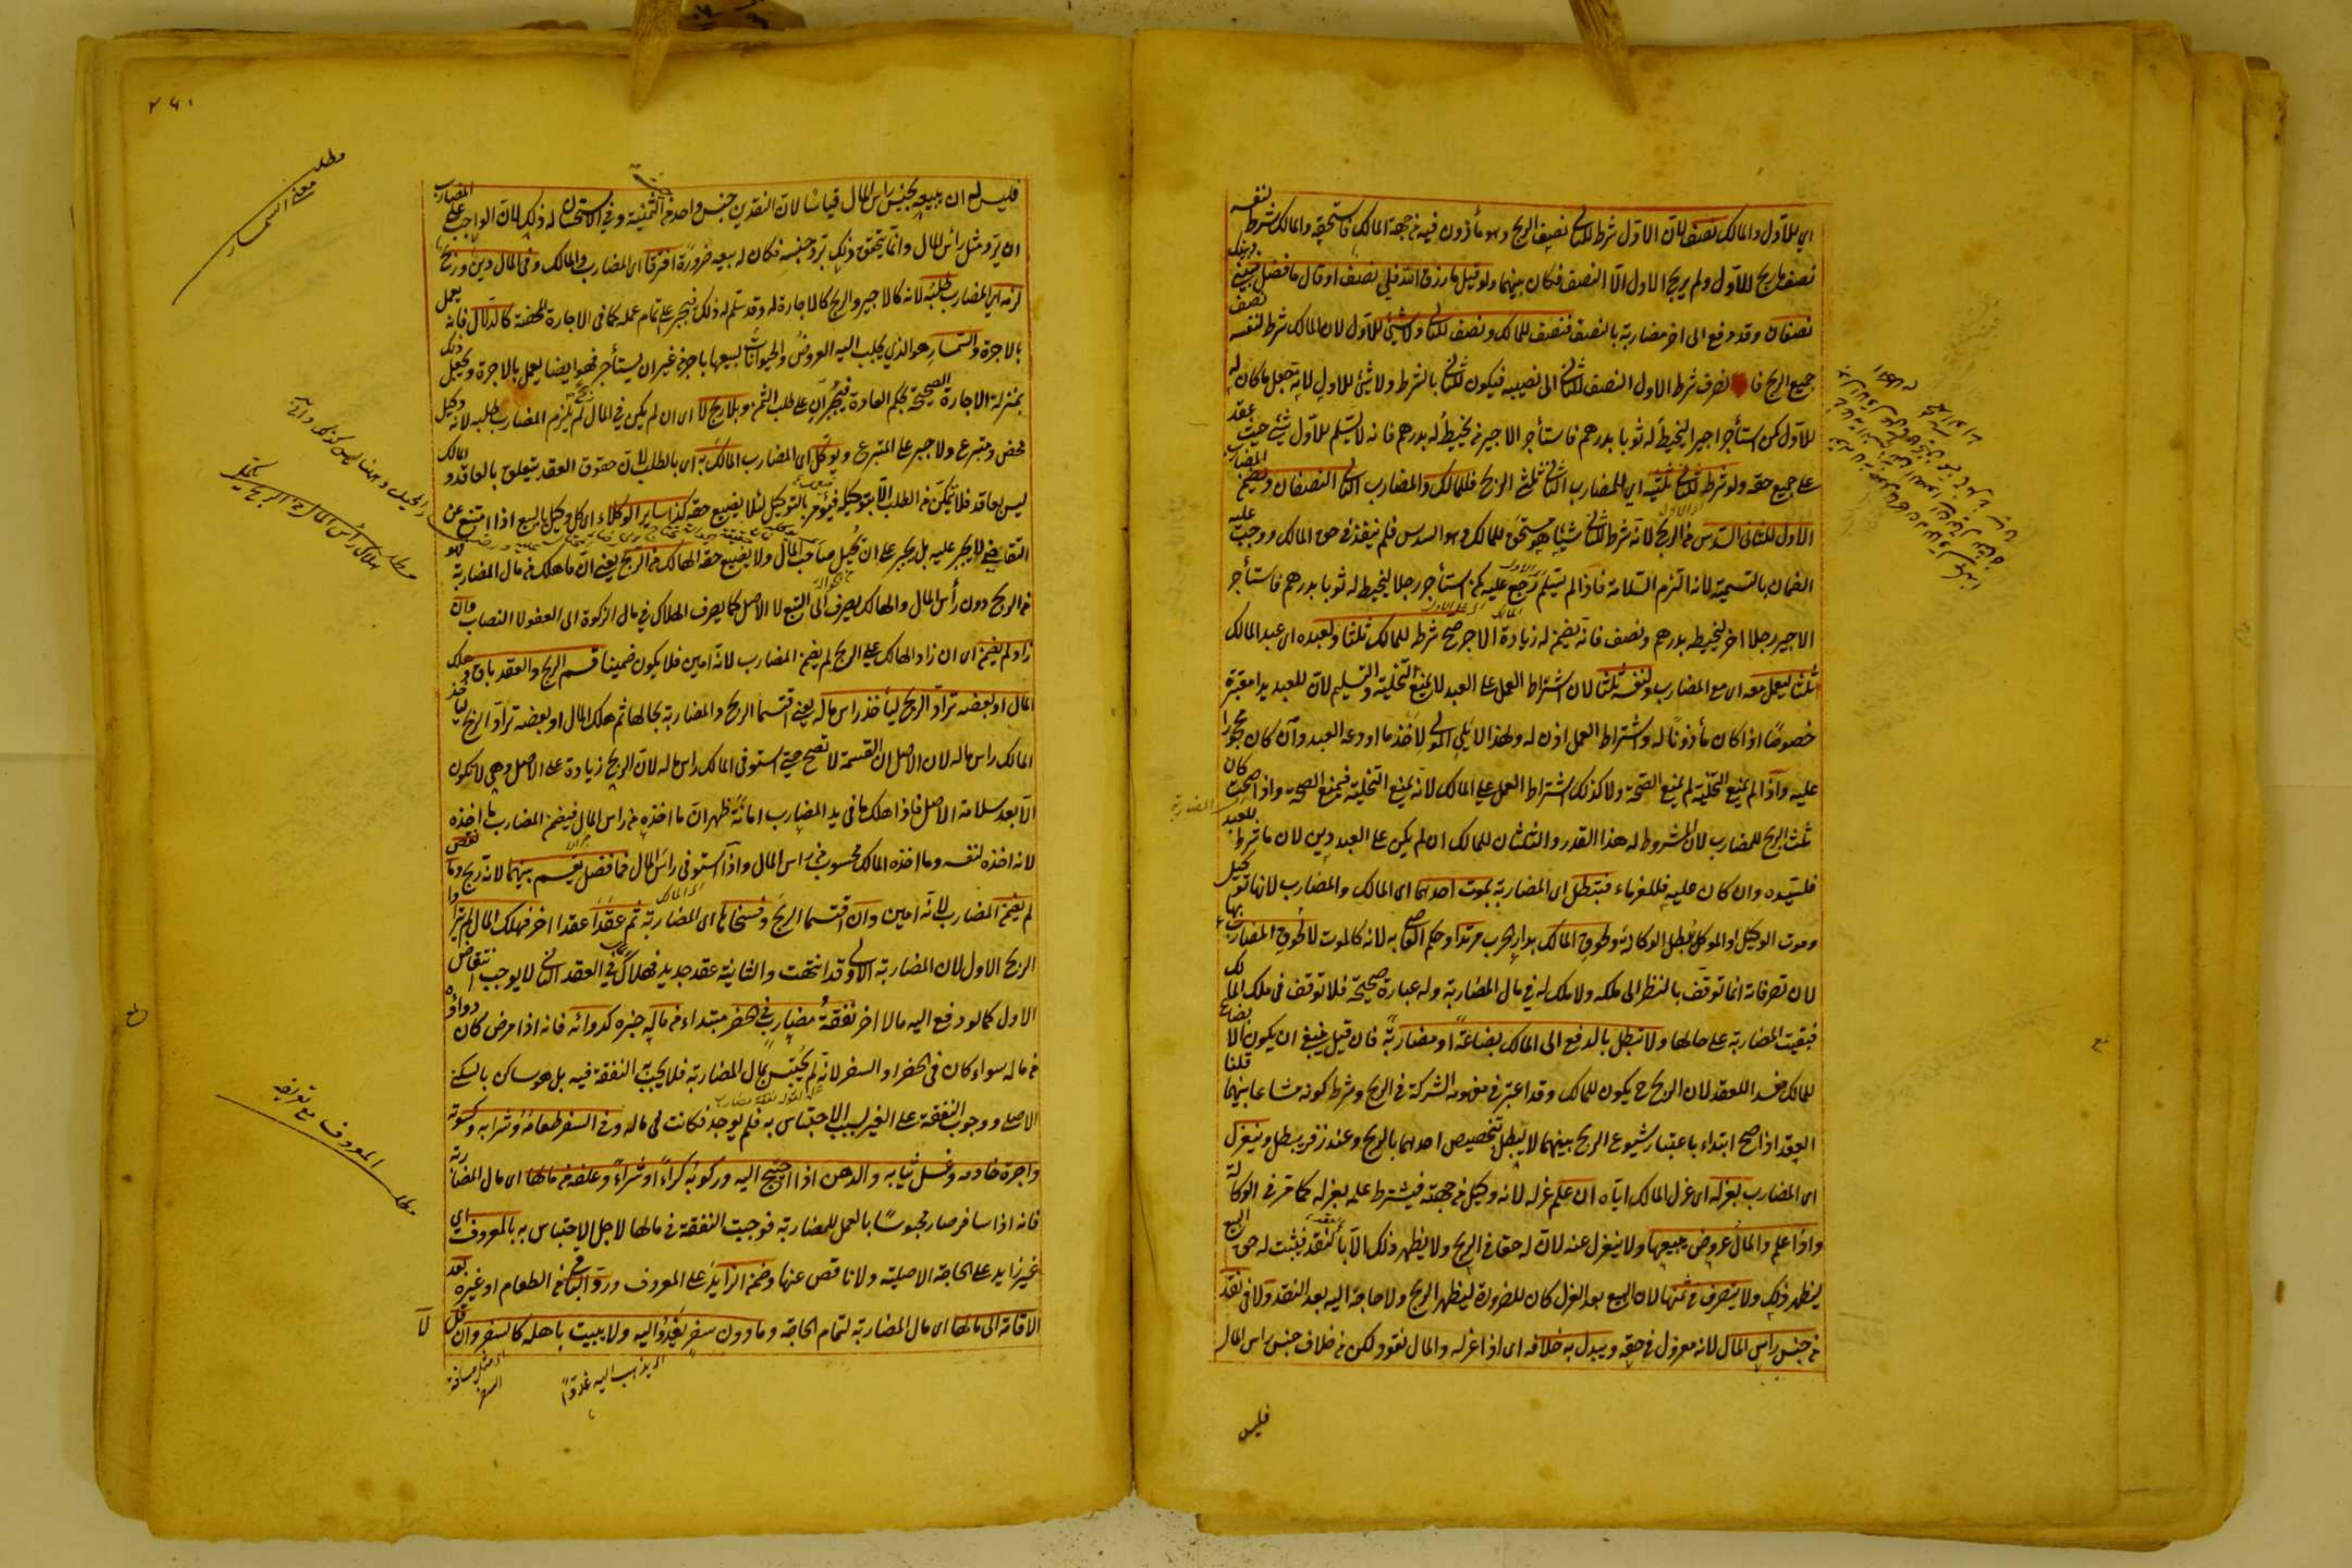 اي للأول والمالك نصف لأن الاول شرط للثاني نصف الربح وهو مأذون فيه من جهة المالك فاستحقه والمالك شرط لنفسه
نصف ما ربح للاول ولم يربح الاول الا النصف فكان بينهما ولو قيل ما رزق الله فلي نصف او قال ما فضل فبيني وبينك
نصفان وقد دفع الى اخر مضاربة بالنصف فنصف للمالك ونصف للثاني ولا شيئ للأول لان المالك شرط لنفسه نصف
جميع الربح فانصرف شرط الاول النصف للثاني الى نصيبه فيكون للثاني بالشرط ولا شيئ للاول لانه جعل ما كان له
للاول كمن استأجر اجيرا ليخيط له ثوبا بدرهم فاستأجر الاجير من يخيط له بدرهم فانه لا يسلم للأول شيئ حيث عقد
على جميع حقه ولو شرط للثاني ثلثيه اي للمضارب الثاني ثلثي الربح فللمالك والمضارب الثاني النصفان ويضمن المضارب
الاول للثاني السدس من الربح لانه شرط للثاني شيئا هو مستحق للمالك وهو السدس فلم ينفذ في حق المالك ووجب عليه
الضمان بالتسمية لانه التزم السلامة فاذا لم يسلم رجع عليه كمن استأجر رجلا ليخيط له ثوبا بدرهم فاستأجر
الاجير رجلا اخر ليخيط بدرهم ونصف فانه يضمن له زيادة الاجر صح شرطه للمالك ثلثا ولعبده اي عبد المالك
ثلثا ليعمل معه اي مع المضارب ولنفسه ثلثا لان اشتراط العمل على العبد لا يمنع التخلية والتسليم لان للعبد يدا معتبرة
خصوصا اذا كان مأذونا له واشتراط العمل اذن له ولهذا لا يلي المولى لاخذ ما اودعه العبد وان كان محجورا
عليه واذا لم يمنع التخلية لم يمنع الصحة ولا كذلك اشتراط العمل على المالك لانه يمنع التخلية فيمنع الصحة واذا صحت كان
ثلث الربح للمضارب لان المشروط له هذا القدر والثلثان للمالك ان لم يكن على العبد دين لان ما شرط للعبد
فلسيده وان كان عليه فللغرماء فتبطل اي المضاربة بموت احدهما اي المالك والمضارب لانها توكيل
وموت الوكيل او الموكل يبطل الوكالة ولحوق المالك بدار الحرب مرتدا وحكم القاضي به لانه كالموت لا لحوق المضارب بها
لان تصرفاته انما توقف بالنظر الى ملكه ولا ملك له في مال المضاربة وله عبارة صحيحة فلا توقف في ملك المالك
فبقيت المضاربة على حالها ولا تبطل بالدفع الى المالك بضاعة او مضاربة فان قيل ينبغي ان يكون الابضاع
للمالك مفسدا للعقد لان الربح ح يكون للمالك وقد اعتبر في مفهومه الشركة في الربح وشرط كونه مشاعا بينهما قلنا
العقد اذا صح ابتداء باعتبار شيوع الربح بينهما لا يبطل بتخصيص احدهما بالربح وعند زفر يبطل وينعزل
اي المضارب بعزله اي عزل المالك اياه ان علم عزله لانه وكيل من جهته فيشترط علمه بعزله كما مر في الوكالة
واذا علم والمال عروض يبيعها ولا ينعزل عنه لان له حقا في الربح ولا يظهر ذلك الا بالنقد فيثبت له حق البيع
ليظهر ذلك ولا يتصرف في ثمنها لان البيع بعد العزل كان للضرورة ليظهر الربح ولا حاجة اليه بعد النقد ولا في نقد
من جنس راس المال لانه معزول في حقه ويبدل به خلافه اي اذا عزله والمال نقود لكن من خلاف جنس راس المال
فليس
٢٤١
فليس له ان يبيعه بجنس راس المال قياسا لان النقدين جنس واحد من الثمنية وفي الاستحسان له ذلك لان الواجب على المضارب
ان يرد مثل رأس المال وانما يتحقق ذلك برد جنسه فكان له بيعه ضرورة افترقا اي المضارب والمالك وفي المال دين وربح
لزمه اي المضارب طلبه لانه كالاجير والربح كالاجارة له وقد سلم له ذلك فيجبر على تمام عمله كما في الاجارة المحضة كالدلال فانه يعمل
بالاجرة والسمسار هو الذي يجلب اليه العروض والحيوانات لبيعها باجر من غير ان يستأجر فهو ايضا يعمل بالاجرة ويجعل ذلك
بمنزلة الاجارة الصحيحة بحكم العادة فيجبران على طلب الثمن وبلا ربح لا اي ان لم يكن في المال ربح لم يلزم المضارب طلبه لانه وكيل
محض ومتبرع ولا جبر على المتبرع ويوكل اي المضارب المالك به اي بالطلب لان حقوق العقد يتعلق بالعاقد والمالك
ليس بعاقد فلا يتمكن من الطلب الا بتوكيله فيؤمر بالتوكيل لئلا يضيع حقه كذا ساير الوكلاء اي كل وكيل بالبيع اذا امتنع عن
التقاضي لا يجبر عليه بل يجبر على ان يحيل صاحب المال ولا يضيع حقه الهالك من الربح يعني ان ما هلك من مال المضاربة فهو
من الربح دون رأس المال والهالك يصرف الى التبع لا الاصل كما يصرف الهلاك في مال الزكوة الى العفو لا النصاب وان
زاد لم يضمن اي ان زاد الهالك على الربح لم يضمن المضارب لانه امين فلا يكون ضمينا قسم الربح والعقد باق وهلك
المال او بعضه ترادا الربح ليأخذ راس ماله يعني اقتسما الربح والمضاربة بحالها ثم هلك المال او بعضه ترادا الربح ليأخذ
المالك راس ماله لان الاصل ان القسمة لا تصح حتى استوفى المالك راس ماله لان الربح زيادة على الاصل وهي لا تكون
الا بعد سلامة الاصل فاذا هلك ما في يد المضارب امانة ظهر ان ما اخذه من راس المال فيضمن المضارب ما اخذه
لانه اخذه لنفسه وما اخذه المالك محسوب من راس المال واذا استوفى راس المال فما فضل يقسم بينهما لانه ربح وما نقص
لم يضمن المضارب لانه امين وان اقتسما الربح وفسخاها اي المضاربة ثم عقدا عقدا اخر فهلك المال لم يترادا
الربح الاول لان المضاربة الاولى قد انتهت والثانية عقد جديد فهلاك المال في العقد الثاني لا يوجب انتقاض
الاول كما لو دفع اليه مالا اخر نفقة مضارب في الحضر مبتداء من ماله خبره كدوائه فانه اذا مرض كان دواؤه
من ماله سواء كان في الحضر او السفر لانه لم يحتبس بمال المضاربة فلا يجب النفقة فيه بل هو ساكن بالسكنى
الاصلي ووجوب النفقة على الغير لسبب الاحتباس به فلم يوجد فكانت في ماله وفي السفر طعامه وشرابه وكسوته
واجرة خادمه وغسل ثيابه والدهن اذا احتيج اليه وركوبه كراء او شراء وعلفه من مالها اي مال المضاربة
فانه اذا سافر صار محبوسا بالعمل للمضاربة فوجبت النفقة في مالها لاجل الاحتباس به بالمعروف اي
غير زايد على الحاجة الاصلية ولا ناقص عنها وضمن الزايد على المعروف ورد الباقي من الطعام او غيره بعد
الاقامة الى مالها اي مال المضاربة لتمام الحاجة وما دون سفر يغدو اليه ولا يبيت باهله كالسفر وان قل لا
اي يذهب اليه غدوة
مطلب معنى السمسار
مطلب هلاك رأس المال
مطلب المعروف مع تعريفه